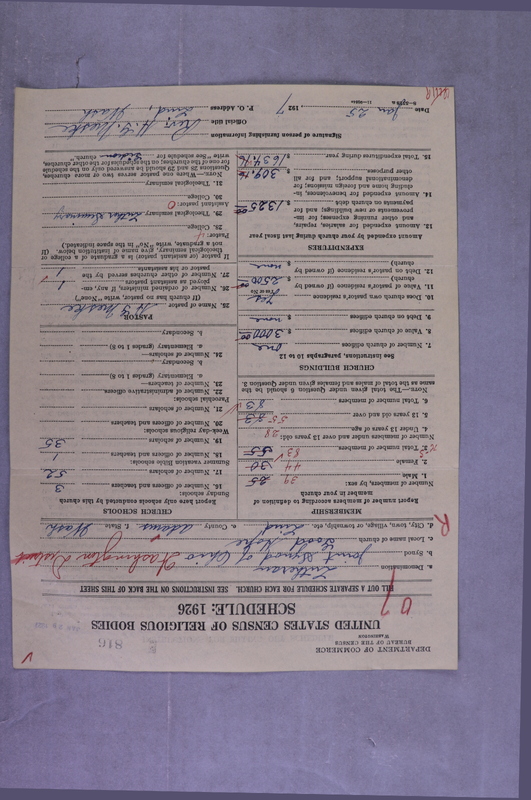 DEPARTMENT OF COMMERCE
BUREAU OF THE CENSUS
WASHINGTON
816
UNITED STATES CENSUS OF RELIGIOUS BODIES
SCHEDULE: 1926
FILL OUT A SEPARATE SCHEDULE FOR EACH CHURCH. SEE INSTRUCTIONS ON THE BACK OF THIS SHEET
a. Denomination Lutheran
b. Synod Joint Synod of Ohio Washington District
c. Local name of church Good Hope
d. City, town, village, or township, etc. Lind e. County Adams f. State Wash
MEMBERSHIP
Report members according to definition of
member in your church
Number of members, by sex:
1. Male 39 25
2. Female 44 30
3. Total number of members 83 55
Number of members under and over 13 years old:
4. Under 13 years of age 28
5. 13 years old and over 55
6. Total number of members 83
NOTE.—The total given under Question 6 should be the
same as the total of males and females given under Question 3.
CHURCH BUILDINGS
See instructions, paragraphs 10 to 12
7. Number of church edifices one
8. Value of church edifices $ 3000.00
9. Debt on church edifices $ none
10. Does church own pastor's residence yes
(Yes or No)
11. Value of pastor's residence (if owned by
church) $ 2500.00
12. Debt on pastor's residence (if owned by
church) $ none
EXPENDITURES
Amount expended by your church during last fiscal year
13. Amount expended for salaries, repairs,
and other running expenses; for im-
provements or new buildings; and for
payments on church debt $ 1325.00
14. Amount expended for benevolences, in-
cluding home and foreign missions; for
denominational support; and for all
other purposes $ 309.16
15. Total expenditures during year $ 1634.16
CHURCH SCHOOLS
Report here only schools conducted by this church
Sunday schools:
16. Number of officers and teachers 3
17. Number of scholars 52
Summer vacation Bible schools:
18. Number of officers and teachers 1
19. Number of scholars 35
Week-day religious schools:
20. Number of officers and teachers
21. Number of scholars
Parochial schools:
22. Number of administrative officers
23. Number of teachers
a. Elementary (grades 1 to 8)
b. Secondary
24. Number of scholars
a. Elementary (grades 1 to 8)
b. Secondary
PASTOR
25. Name of pastor
(If church has no pastor, write "None")
26. Number of ordained ministers, if any, em-
ployed as assistant pastors
27. Number of other churches served by the
pastor or his assistants 1
If pastor (or assistant pastor) is a graduate of a college or
theological seminary, give name of institution below. (If
not a graduate, write "No" in the space indicated.)
Pastor:
28. College
29. Theological seminary Luther Seminary
Assistant pastor: 0
30. College
31. Theological seminary
NOTE.—Where one pastor serves two or more churches,
Questions 28 and 29 should be answered only on the schedule
for one of the churches; on the schedules for the other churches,
write "See schedule for church."
Signature of person furnishing information
Official title
Date Jan 25, 1927 P. O. Address Lind, Wash